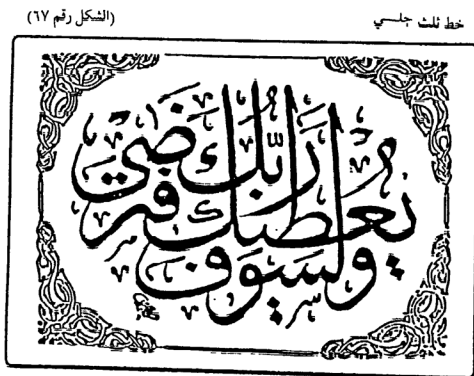 خط ثلث جلسي
(الشكل رقم ٦٧)
ولسوف يعطيك ربك فترضى